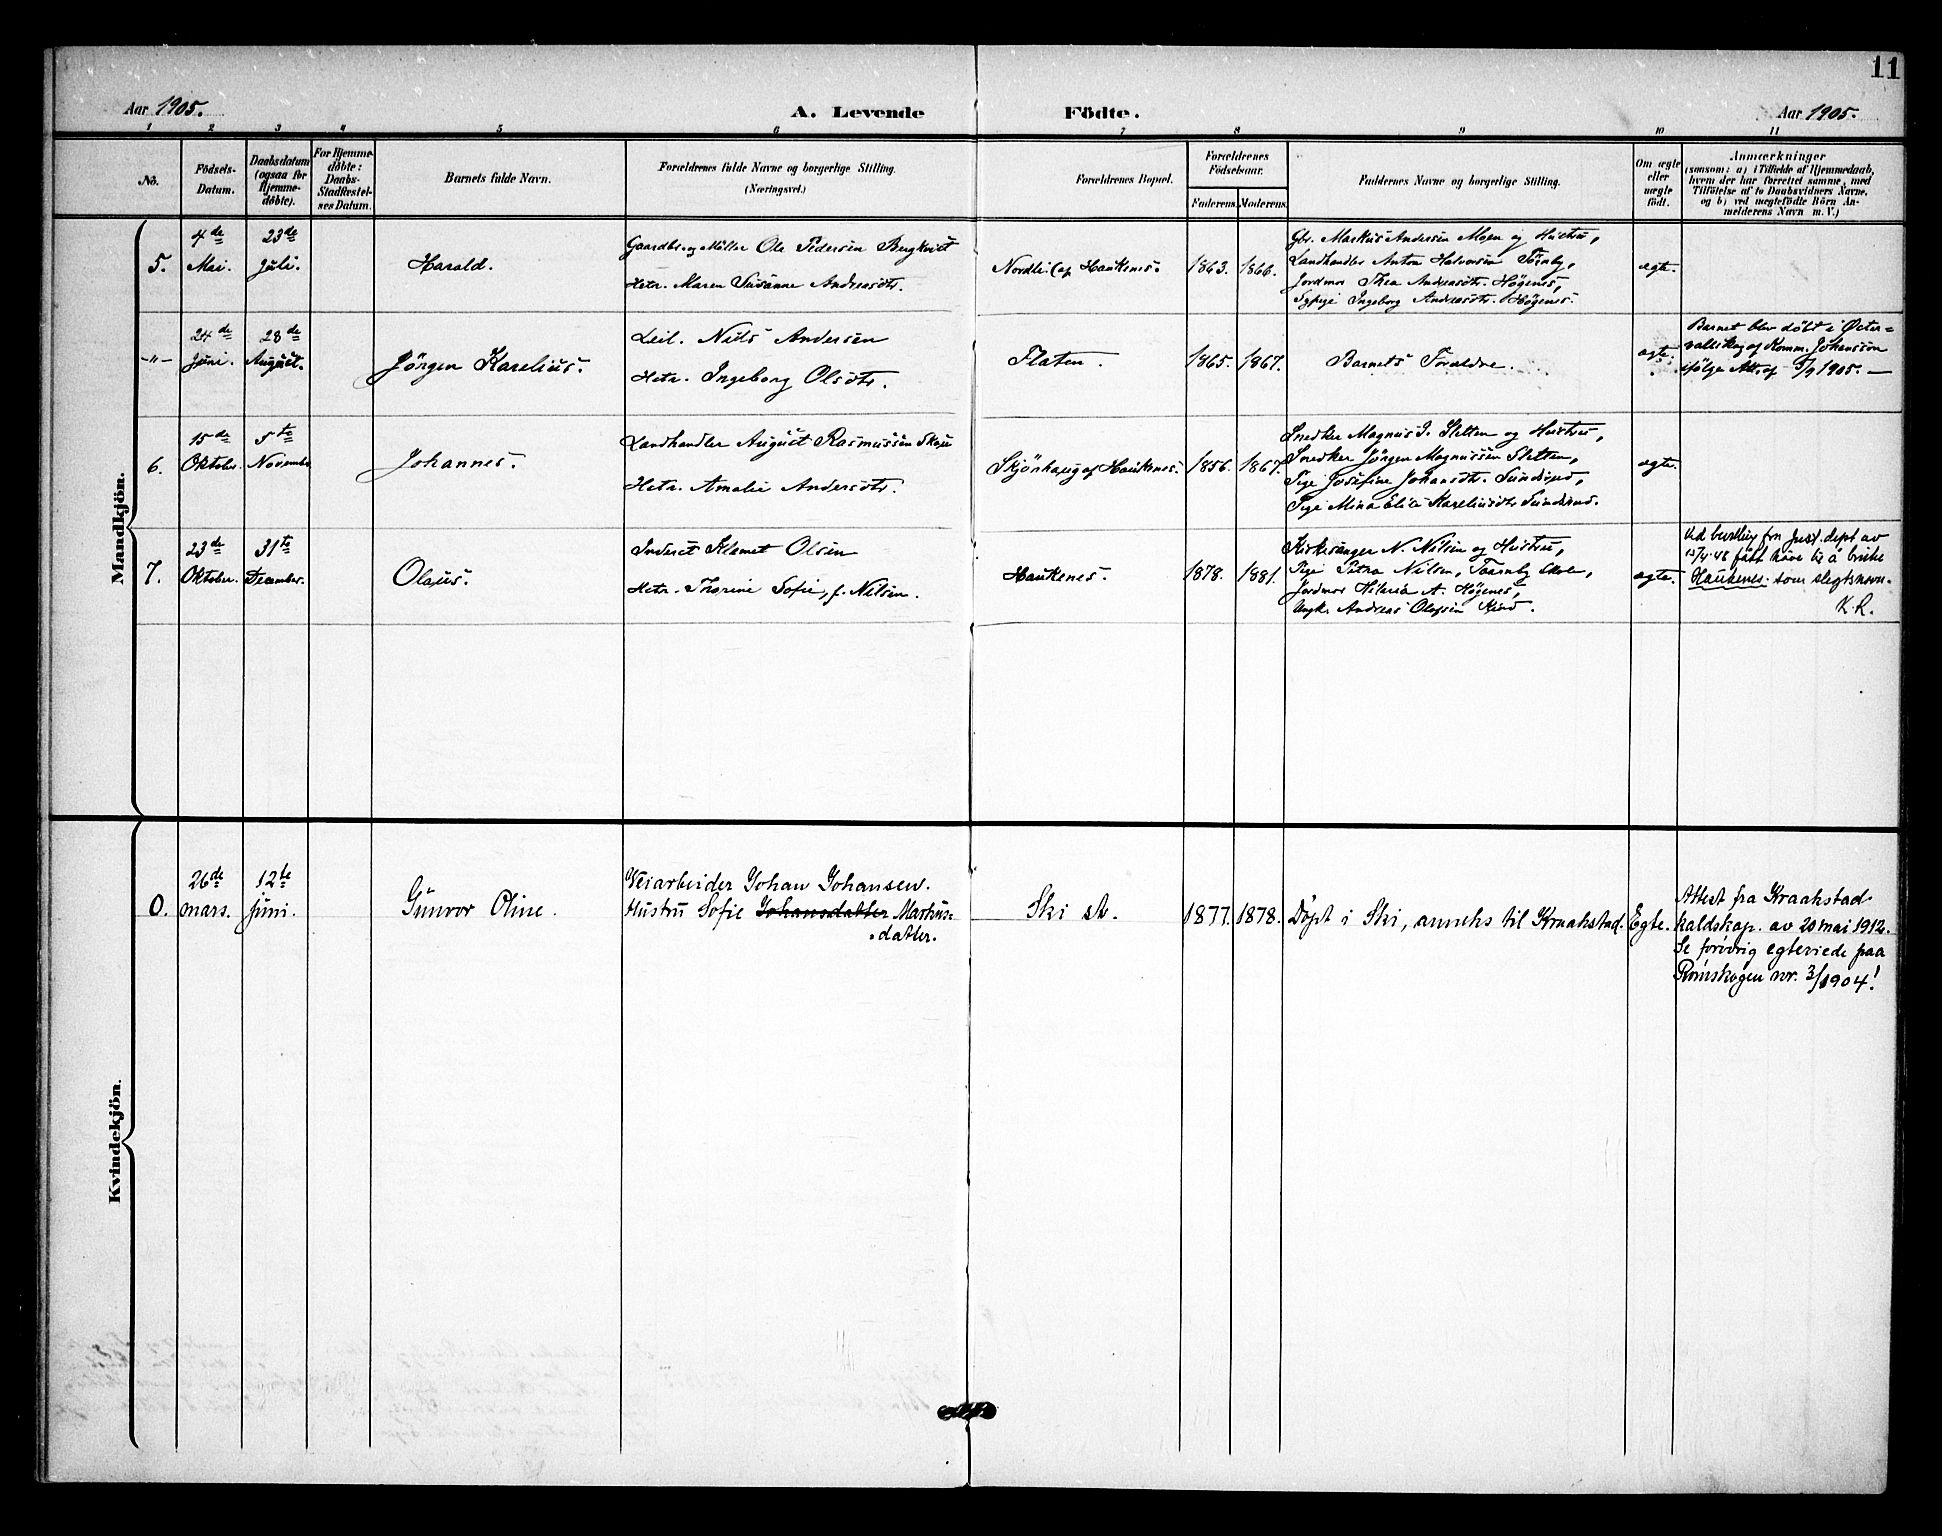 11
Aar 1905.
A. Levende Födte.
Aar 1905.
1 2 3 4 5 6 7 8 9 10 11
No.
Födsels-
Datum.
Daabsdatum
(ogsaa for
Hjemme-
döbte).
For Hjemme-
döbte:
Daabs-
Stadfæstel-
ses Datum.
Barnets fulde Navn.
Forældrenes fulde Navne og borgerlige Stilling.
(Næringsvei.)
Forældrenes Bopæl.
Forældrenes
Födselsaar.
Faderens. Moderens.
Faddernes Navne og borgerlige Stilling.
Om ægte
eller
uægte
födt.
Anmærkninger
(saasom: a) i Tilfælde af Hjemmedaab,
hvem der har forrettet samme, med
Tilföielse af to Daabsvidners Navne,
og b) ved uægtefödte Börn An-
melderens Navn m. V.)
Mandkjön.
5.
4de
Mai.
23de
Juli.
Harald.
Gaardbr. og Möller Ole Pedersen Bergkvist
Hstr. Maren Susanne Andreasdtr.
Nordli af Haukenes.
1863. 1866.
Gbr. Markus Andersen Moen og Hustru,
Landhandler Anton Halvorsen Taarnby,
Jordmor Thea Andreasdtr. Högenes,
Sypige Ingeborg Andreasdtr. Högenes.
ægte.
-"-
24de
Juni.
28de
August.
Jörgen Karelius.
Leil. Nils Andersen
Hstr. Ingeborg Olsdtr.
Flaten.
1865. 1867.
Barnets Forældre.
ægte.
Barnet blev döbt i Öster-
vallskog af Komm. Johansson
ifölge Att. af 5/9 1905. —
6.
15de
Oktober.
5te
November
Johannes.
Landhandler August Rasmussen Skøie
Hstr. Amalie Andersdtr.
Skjönhaug af Haukenes.
1856. 1867.
Snedker Magnus J. Sletten og Hustru,
Snedker Jörgen Magnussen Sletten,
Pige Josefine Johansdtr. Sundsrud,
Pige Mina Elise Kareliusdtr. Sundsrud.
ægte.
7.
23de
Oktober.
31te
December.
Olaus.
Inderst Klemet Olsen
Hstr. Thorine Sofie, f. Nilsen.
Haukenes.
1878. 1881.
Kirkesanger N. Nilsen og Hustru,
Pige Petra Nilsen, Taarnby skole,
Jordmor Hilaria A. Högenes,
Ungk. Andreas Olafsen Kind.
ægte.
Ved bevilling fra Just. dept av
15/4-48 fått høve til å bruke
Haukenes som slegtsnavn.
K. R.
Kvindekjön.
0.
26de
mars.
12te
juni.
Gunvor Oline.
Veiarbeider Johan Johansen.
Hustru Sofie Johansdatter Markus-
datter.
Ski st.
1877. 1878.
Döpt i Ski, anneks til Kraakstad.
Egte.
Attest fra Kraakstad
kaldskap. av 20 mai 1912.
Se forövrig egteviede paa
Römskogen nr. 3/1904!